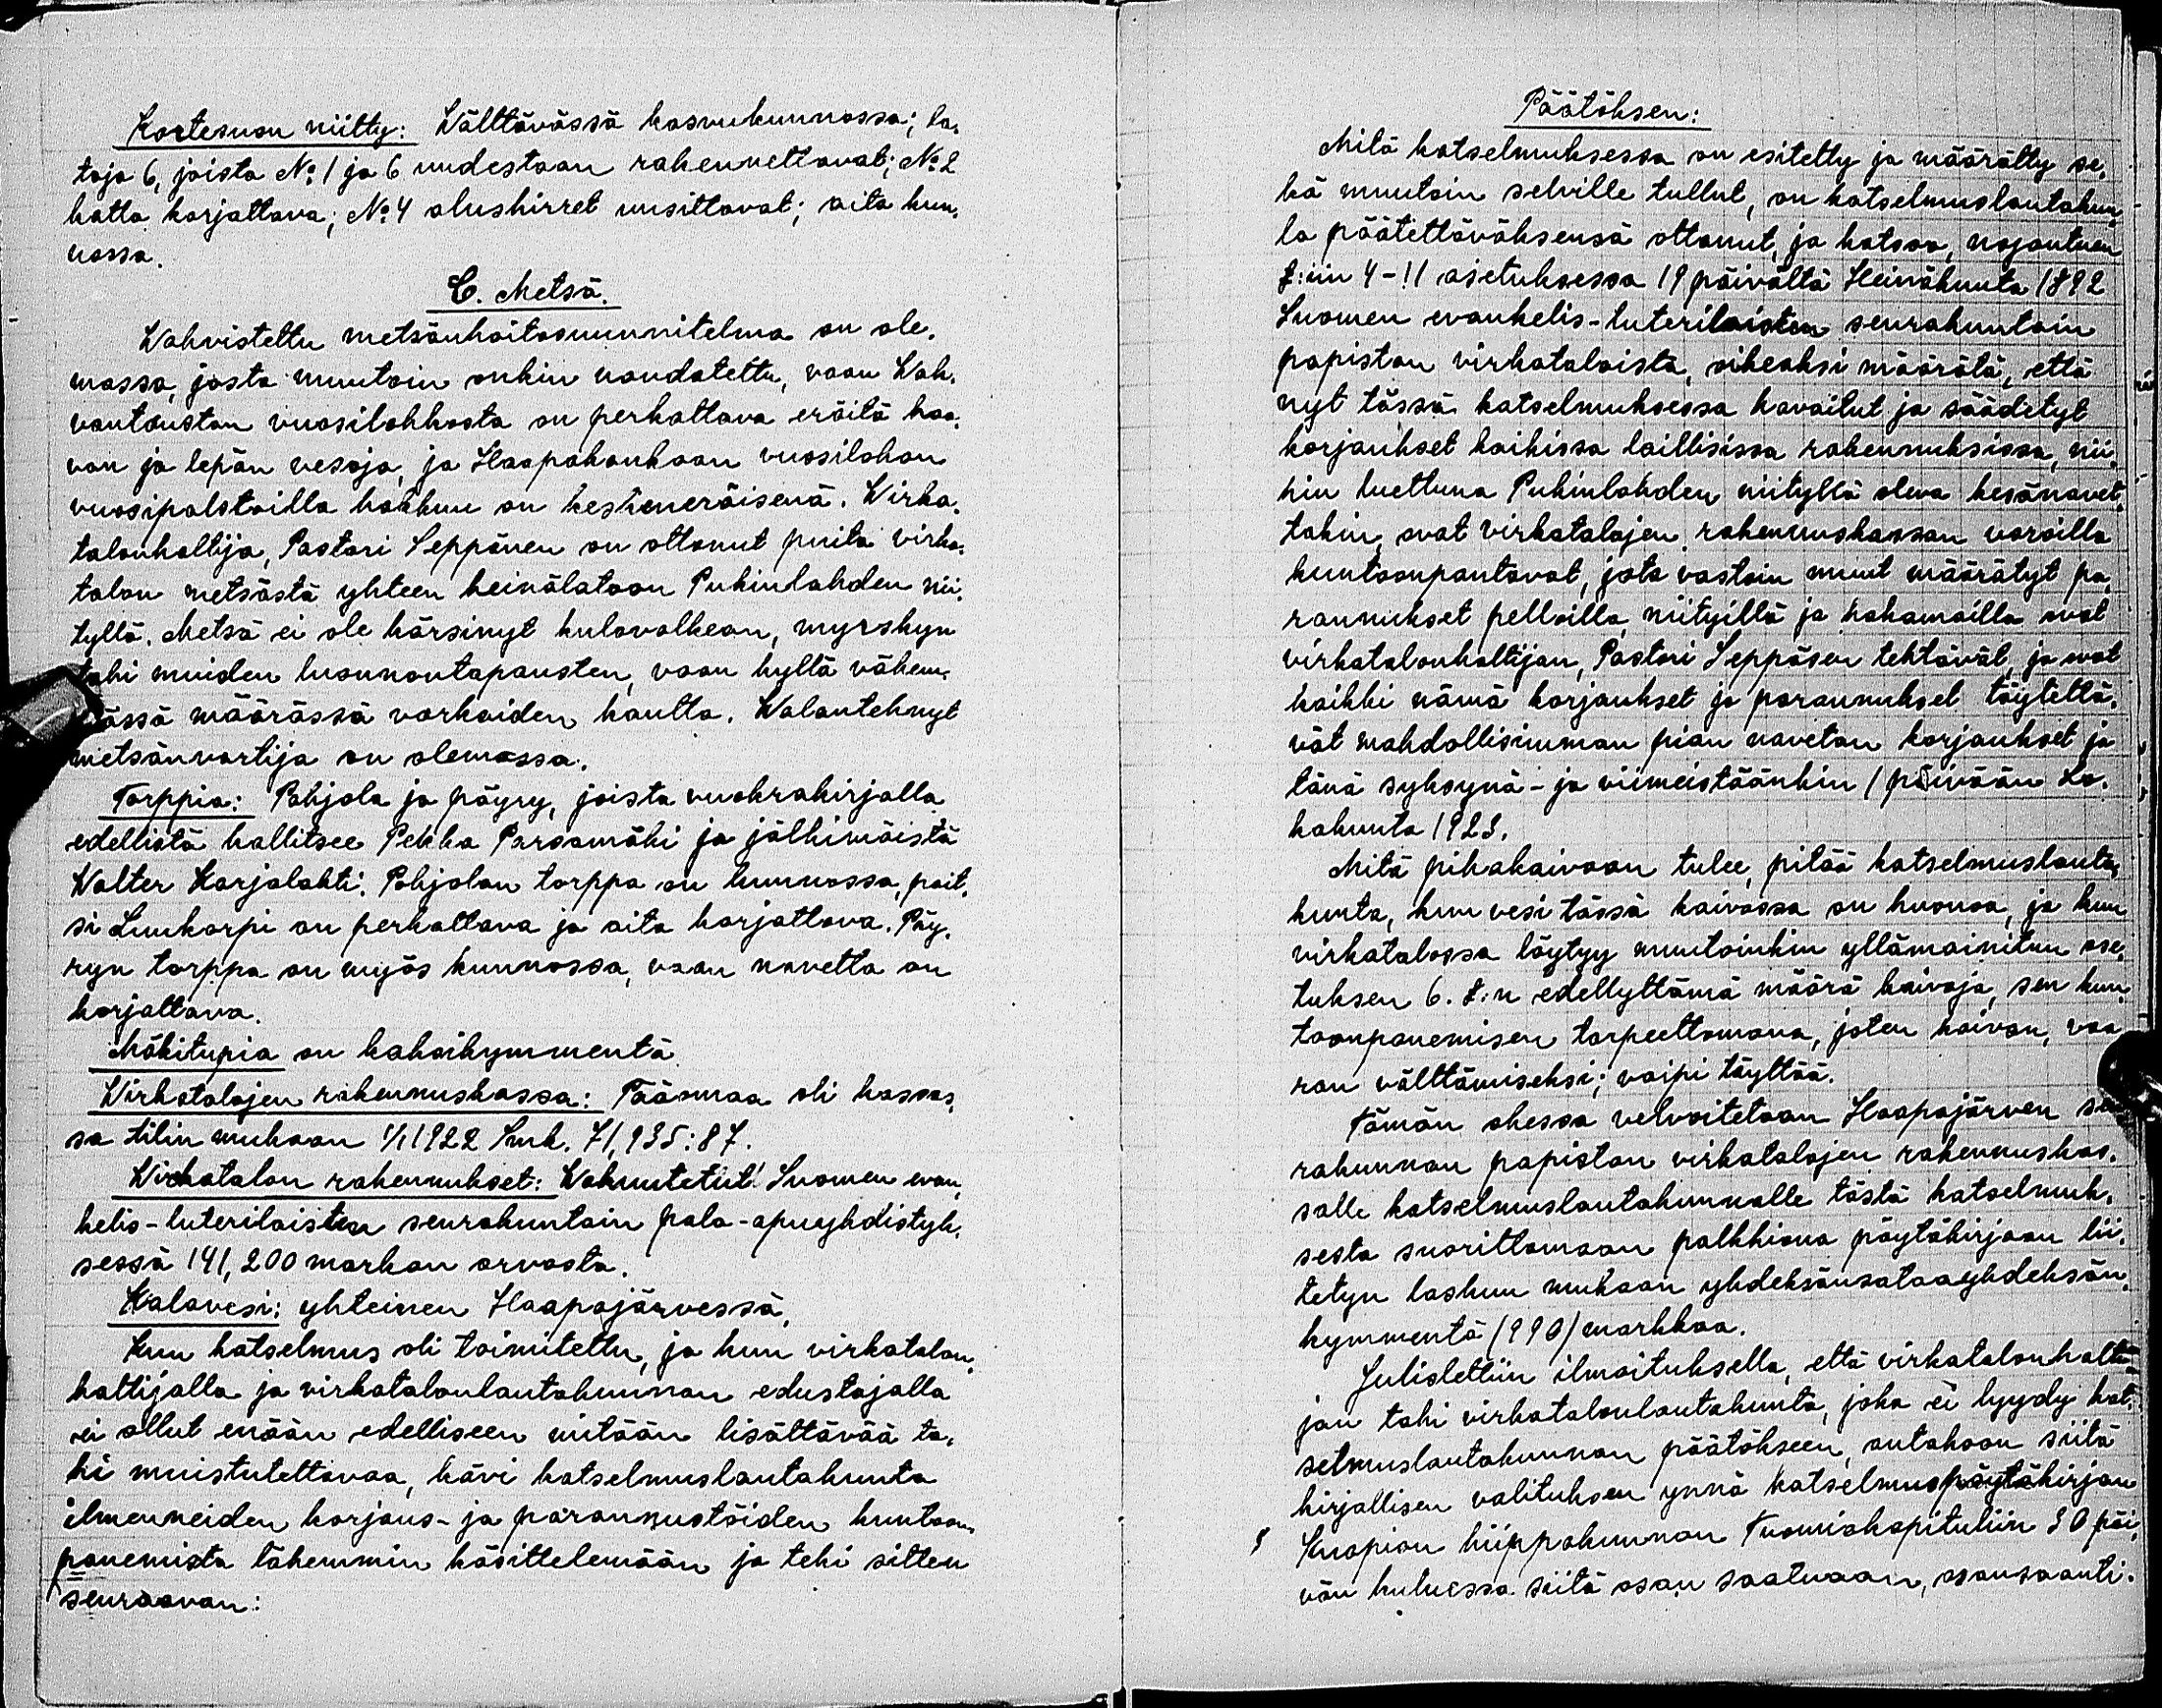 Kortesuon niitty: Wälttävässä kasvukunnossa; la-
toja 6, joista No 1 ja 6 uudestaan rakennettavat; No 2
katto korjattava; No 4 alushirret uusittavat; aita kun-
nossa.
C. Metsä.
Wahvistettu metsänhoitosuunnitelma on ole-
massa, josta muutoin onkin noudatettu, vaan Wah-
vantauston vuosilohkosta on perkattava eräitä haa-
van ja lepän vesoja, ja Haapakankaan vuosilohon
vuosipalstoilla hakkuu on keskeneräisenä. Wirka-
talonhaltija, Pastori Seppänen on ottanut puita virka-
talon metsästä yhteen heinälatoon Pukinlahden nii-
tyllä. Metsä ei ole kärsinyt kulovalkean, myrskyn
tahi muiden luonnontapausten, vaan kyllä vähem-
mässä määrässä varkaiden kautta. Walantehnyt
metsänvartija on olemassa.
Torppia: Pohjola ja pöyry, joista vuokrakirjalla
edellistä hallitsee Pekka Parsamäki ja jälkimäistä
Walter Karjalahti. Pohjolan torppa on kunnossa, pait-
si Luukorpi on perkattava ja aita korjattava. Pöy-
ryn torppa on myös kunnossa, vaan navetta on
korjattava.
Mäkitupia on kaksikymmentä
Wirkatalojen rakennuskassa: Pääomaa oli kassas-
sa tilin mukaan 1/1 1922 Smk. 71,935:87.
Wirkatalon rakennukset: Wakuutetut Suomen evan-
kelis-luterilaisten seurakuntain palo-apuyhdistyk-
sessä 141,200 markan arvosta.
Kalavesi: yhteinen Haapajärvessä.
Kun katselmus oli toimitettu, ja kun virkatalon-
haltijalla ja virkatalonlautakunnan edustajalla
ei ollut enään edelliseen mitään lisättävää ta-
hi muistutettavaa, kävi katselmuslautakunta
ilmenneiden korjaus- ja parannustöiden kuntoon-
panemista lähemmin käsittelemään ja teki sitten
seuraavan:
Päätöksen:
Mitä katselmuksessa on esitetty ja määrätty se-
kä muutoin selville tullut, on katselmuslautakun-
ta päätettäväksensä ottanut, ja katsoo, nojautuen
§:iin 4-11 asetuksessa 19 päivältä Heinäkuuta 1892
Suomen evankelis-luterilaisten seurakuntain
papiston virkataloista, oikeaksi määrätä, että
nyt tässä katselmuksessa havaitut ja säädetyt
korjaukset kaikissa laillisissa rakennuksissa, nii-
hin luettuna Pukinlahden niityllä oleva kesänavet-
takin, ovat virkatalojen rakennuskassan varoilla
kuntoonpantavat, jota vastoin muut määrätyt pa-
rannukset pelloilla, niityillä ja hakamailla ovat
virkatalonhaltijan, Pastori Seppäsen tehtävät, ja ovat
kaikki nämä korjaukset ja parannukset täytettä-
vät mahdollisimman pian navetan korjaukset jo
tänä syksynä - ja viimeistäänkin 1 päivään Lo-
kakuuta 1923.
Mitä pihakaivoon tulee, pitää katselmuslauta-
kunta, kun vesi tässä kaivossa on huonoa, ja kun
virkatalossa löytyy muutoinkin yllämainitun ase-
tuksen 6. §:n edellyttämä määrä kaivoja, sen kun-
toonpanemisen tarpeettomana, joten kaivon, vaa-
ran välttämiseksi, vaipi täyttää.
Tämän ohessa velvoitetaan Haapajärven seu-
rakunnan papiston virkatalojen rakennuskas-
salle katselmuslautakunnalle tästä katselmuk-
sesta suorittamaan palkkiona pöytäkirjaan lii-
tetyn laskun mukaan yhdeksänsataayhdeksän-
kymmentä /990/ markkaa.
Julistettiin ilmoituksella, että virkatalonhalti-
jan tahi virkatalonlautakunta, joka ei tyydy kat-
selmuslautakunnan päätökseen, antakoon siitä
kirjallisen valituksen ynnä katselmuspöytäkirjan
Kuopion hiippakunnan Tuomiokapituliin 30 päi-
vän kuluessa siitä osan saatuaan, asansaanti-